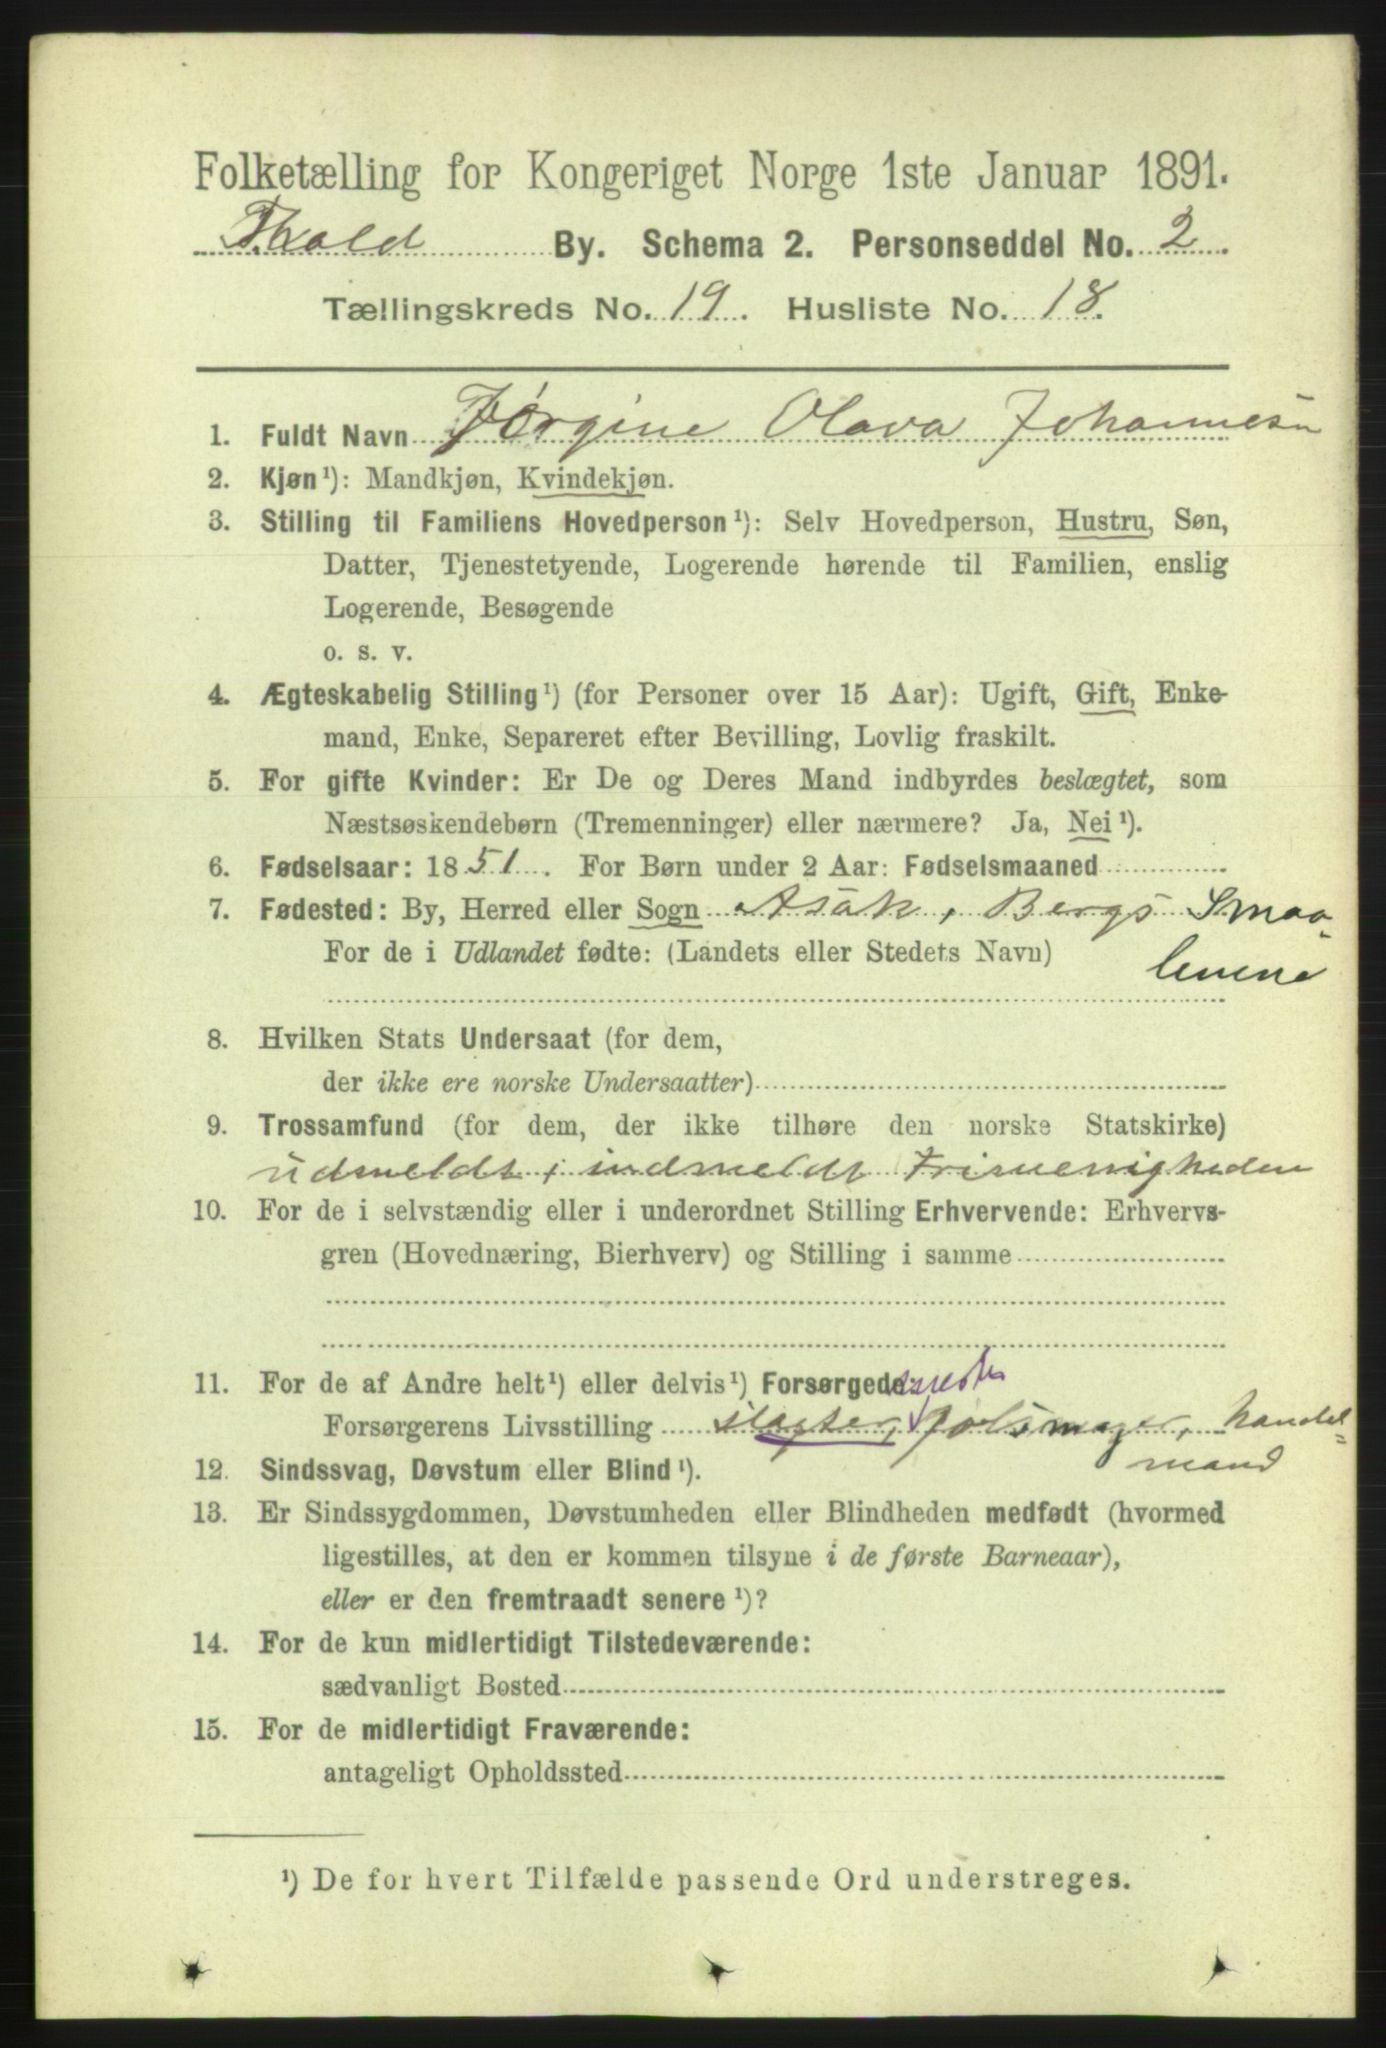 Folketælling for Kongeriget Norge 1ste Januar 1891.
F.hald By. Schema 2. Personseddel No. 2
Tællingskreds No. 19. Husliste No. 18.
1. Fuldt Navn Jørgine Olava Johannesn
2. Kjøn¹): Mandkjøn, Kvindekjøn.
3. Stilling til Familiens Hovedperson¹): Selv Hovedperson, Hustru, Søn,
Datter, Tjenestetyende, Logerende hørende til Familien, enslig
Logerende, Besøgende
o. s. v.
4. Ægteskabelig Stilling¹) (for Personer over 15 Aar): Ugift, Gift, Enke-
mand, Enke, Separeret efter Bevilling, Lovlig fraskilt.
5. For gifte Kvinder: Er De og Deres Mand indbyrdes beslægtet, som
Næstsøskendebørn (Tremenninger) eller nærmere? Ja, Nei¹).
6. Fødselsaar: 1851. For Børn under 2 Aar: Fødselsmaaned
7. Fødested: By, Herred eller Sogn Asak, Bergs Smaa-
lenene
For de i Udlandet fødte: (Landets eller Stedets Navn)
8. Hvilken Stats Undersaat (for dem,
der ikke ere norske Undersaatter)
9. Trossamfund (for dem, der ikke tilhøre den norske Statskirke)
udmeldt, indmeldt Frimenigheden
10. For de i selvstændig eller i underordnet Stilling Erhvervende: Erhvervs-
gren (Hovednæring, Bierhverv) og Stilling i samme
11. For de af Andre helt¹) eller delvis¹) Forsørgede:
Forsørgerens Livsstilling slagter, pølsmager, handel=
mand
12. Sindssvag, Døvstum eller Blind¹).
13. Er Sindssygdommen, Døvstumheden eller Blindheden medfødt (hvormed
ligestilles, at den er kommen tilsyne i de første Barneaar),
eller er den fremtraadt senere¹)?
14. For de kun midlertidigt Tilstedeværende:
sædvanligt Bosted
15. For de midlertidigt Fraværende:
antageligt Opholdssted
¹) De for hvert Tilfælde passende Ord understreges.